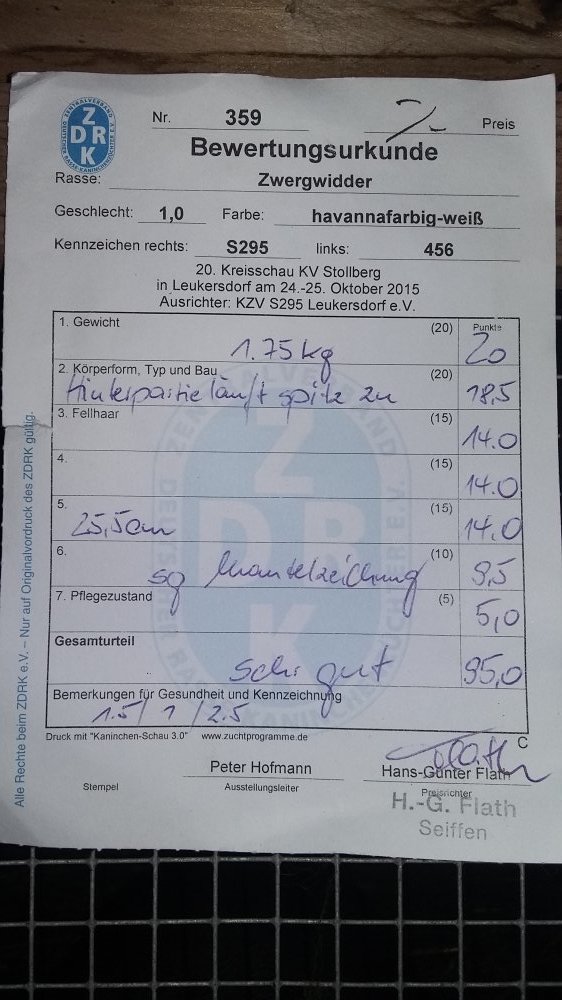 ZENTRALVERBAND
DEUTSCHER RASSE-KANINCHENZÜCHTER E.V.
Z
DRK
K
Nr. 359 Preis
Bewertungsurkunde
Rasse: Zwergwidder
Geschlecht: 1,0 Farbe: havannafarbig-weiß
Kennzeichen rechts: S295 links: 456
20. Kreisschau KV Stollberg
in Leukersdorf am 24.-25. Oktober 2015
Ausrichter: KZV S295 Leukersdorf e.V.
1. Gewicht (20) Punkte
1.75 kg 20
2. Körperform, Typ und Bau (20)
Hinterpartie läuft spitz zu 18,5
3. Fellhaar (15)
14.0
4. (15)
14.0
5. (15)
25,5cm 14,0
6. (10)
sg Mantelzeichnung 9,5
7. Pflegezustand (5)
5,0
Gesamturteil
sehr gut 95,0
Bemerkungen für Gesundheit und Kennzeichnung
1.5/ 1 / 2.5
Druck mit "Kaninchen-Schau 3.0" www.zuchtprogramme.de C
Peter Hofmann Hans-Günter Flath
Stempel Ausstellungsleiter Preisrichter
H.-G. Flath
Seiffen
Alle Rechte beim ZDRK e.V. – Nur auf Originalvordruck des ZDRK gültig.